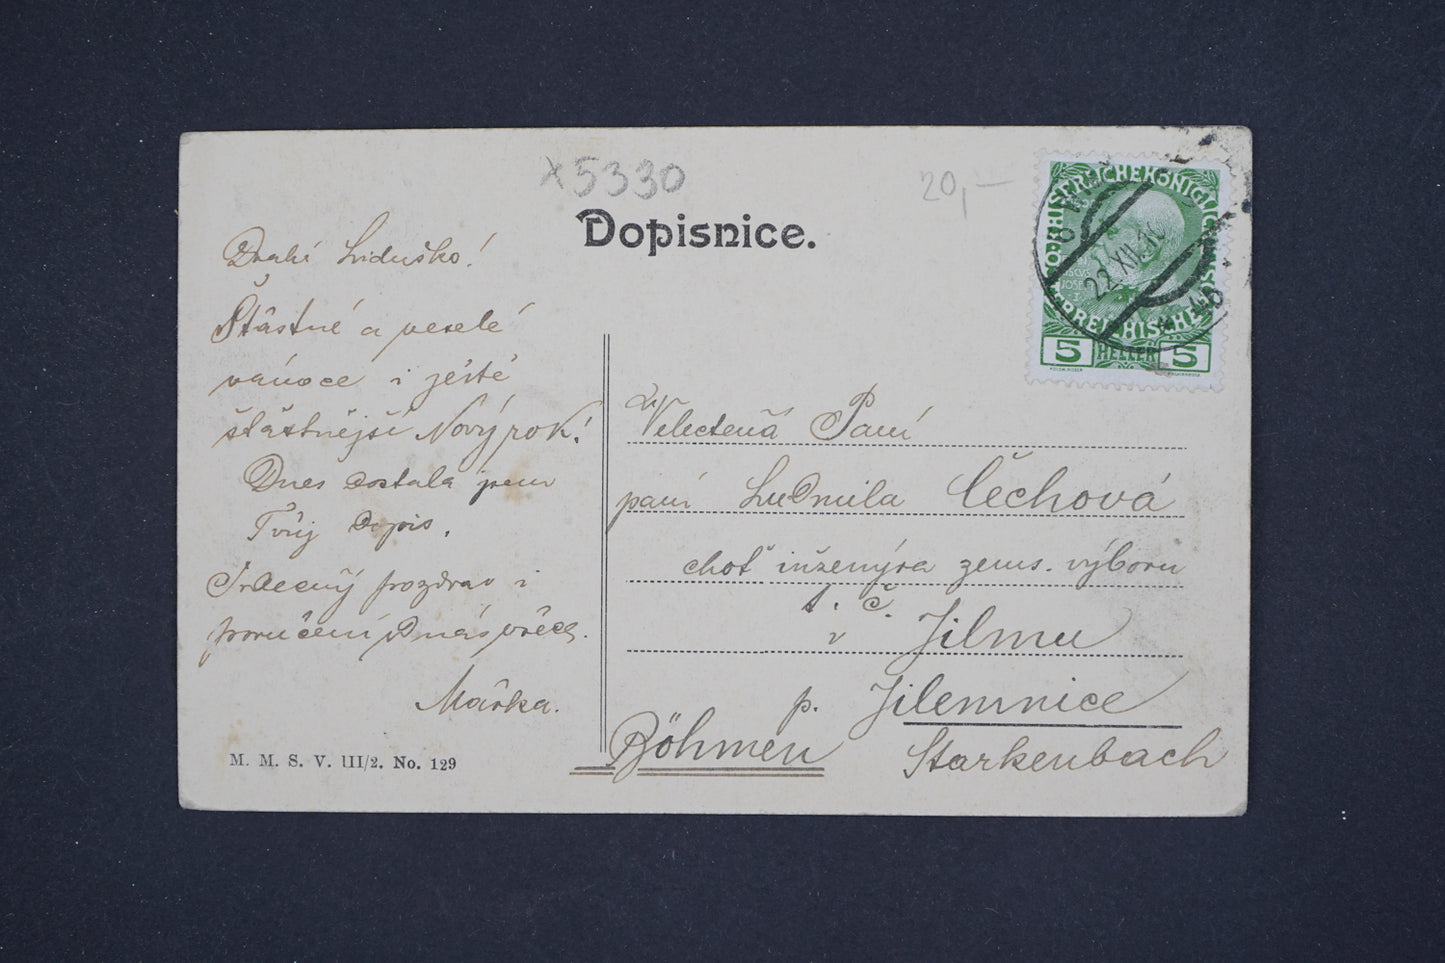 x5330
20,—
Dopisnice.
Drahá Liduško!
Šťastné a veselé
vánoce i ještě
šťastnější Nový rok!
Dnes dostala jsem
Tvůj dopis.
Srdečný pozdrav i
poručení od nás všech.
Mařka.
M. M. S. V. III/2. No. 129
KAISERLICHE KÖNIGLICHE
ÖSTERREICHISCHE
5 HELLER 5
22 XII
Velectená Paní
paní Ludmila Čechová
choť inženýra zems. výboru
t. č.
v Jilmu
p. Jilemnice
Böhmen Starkenbach